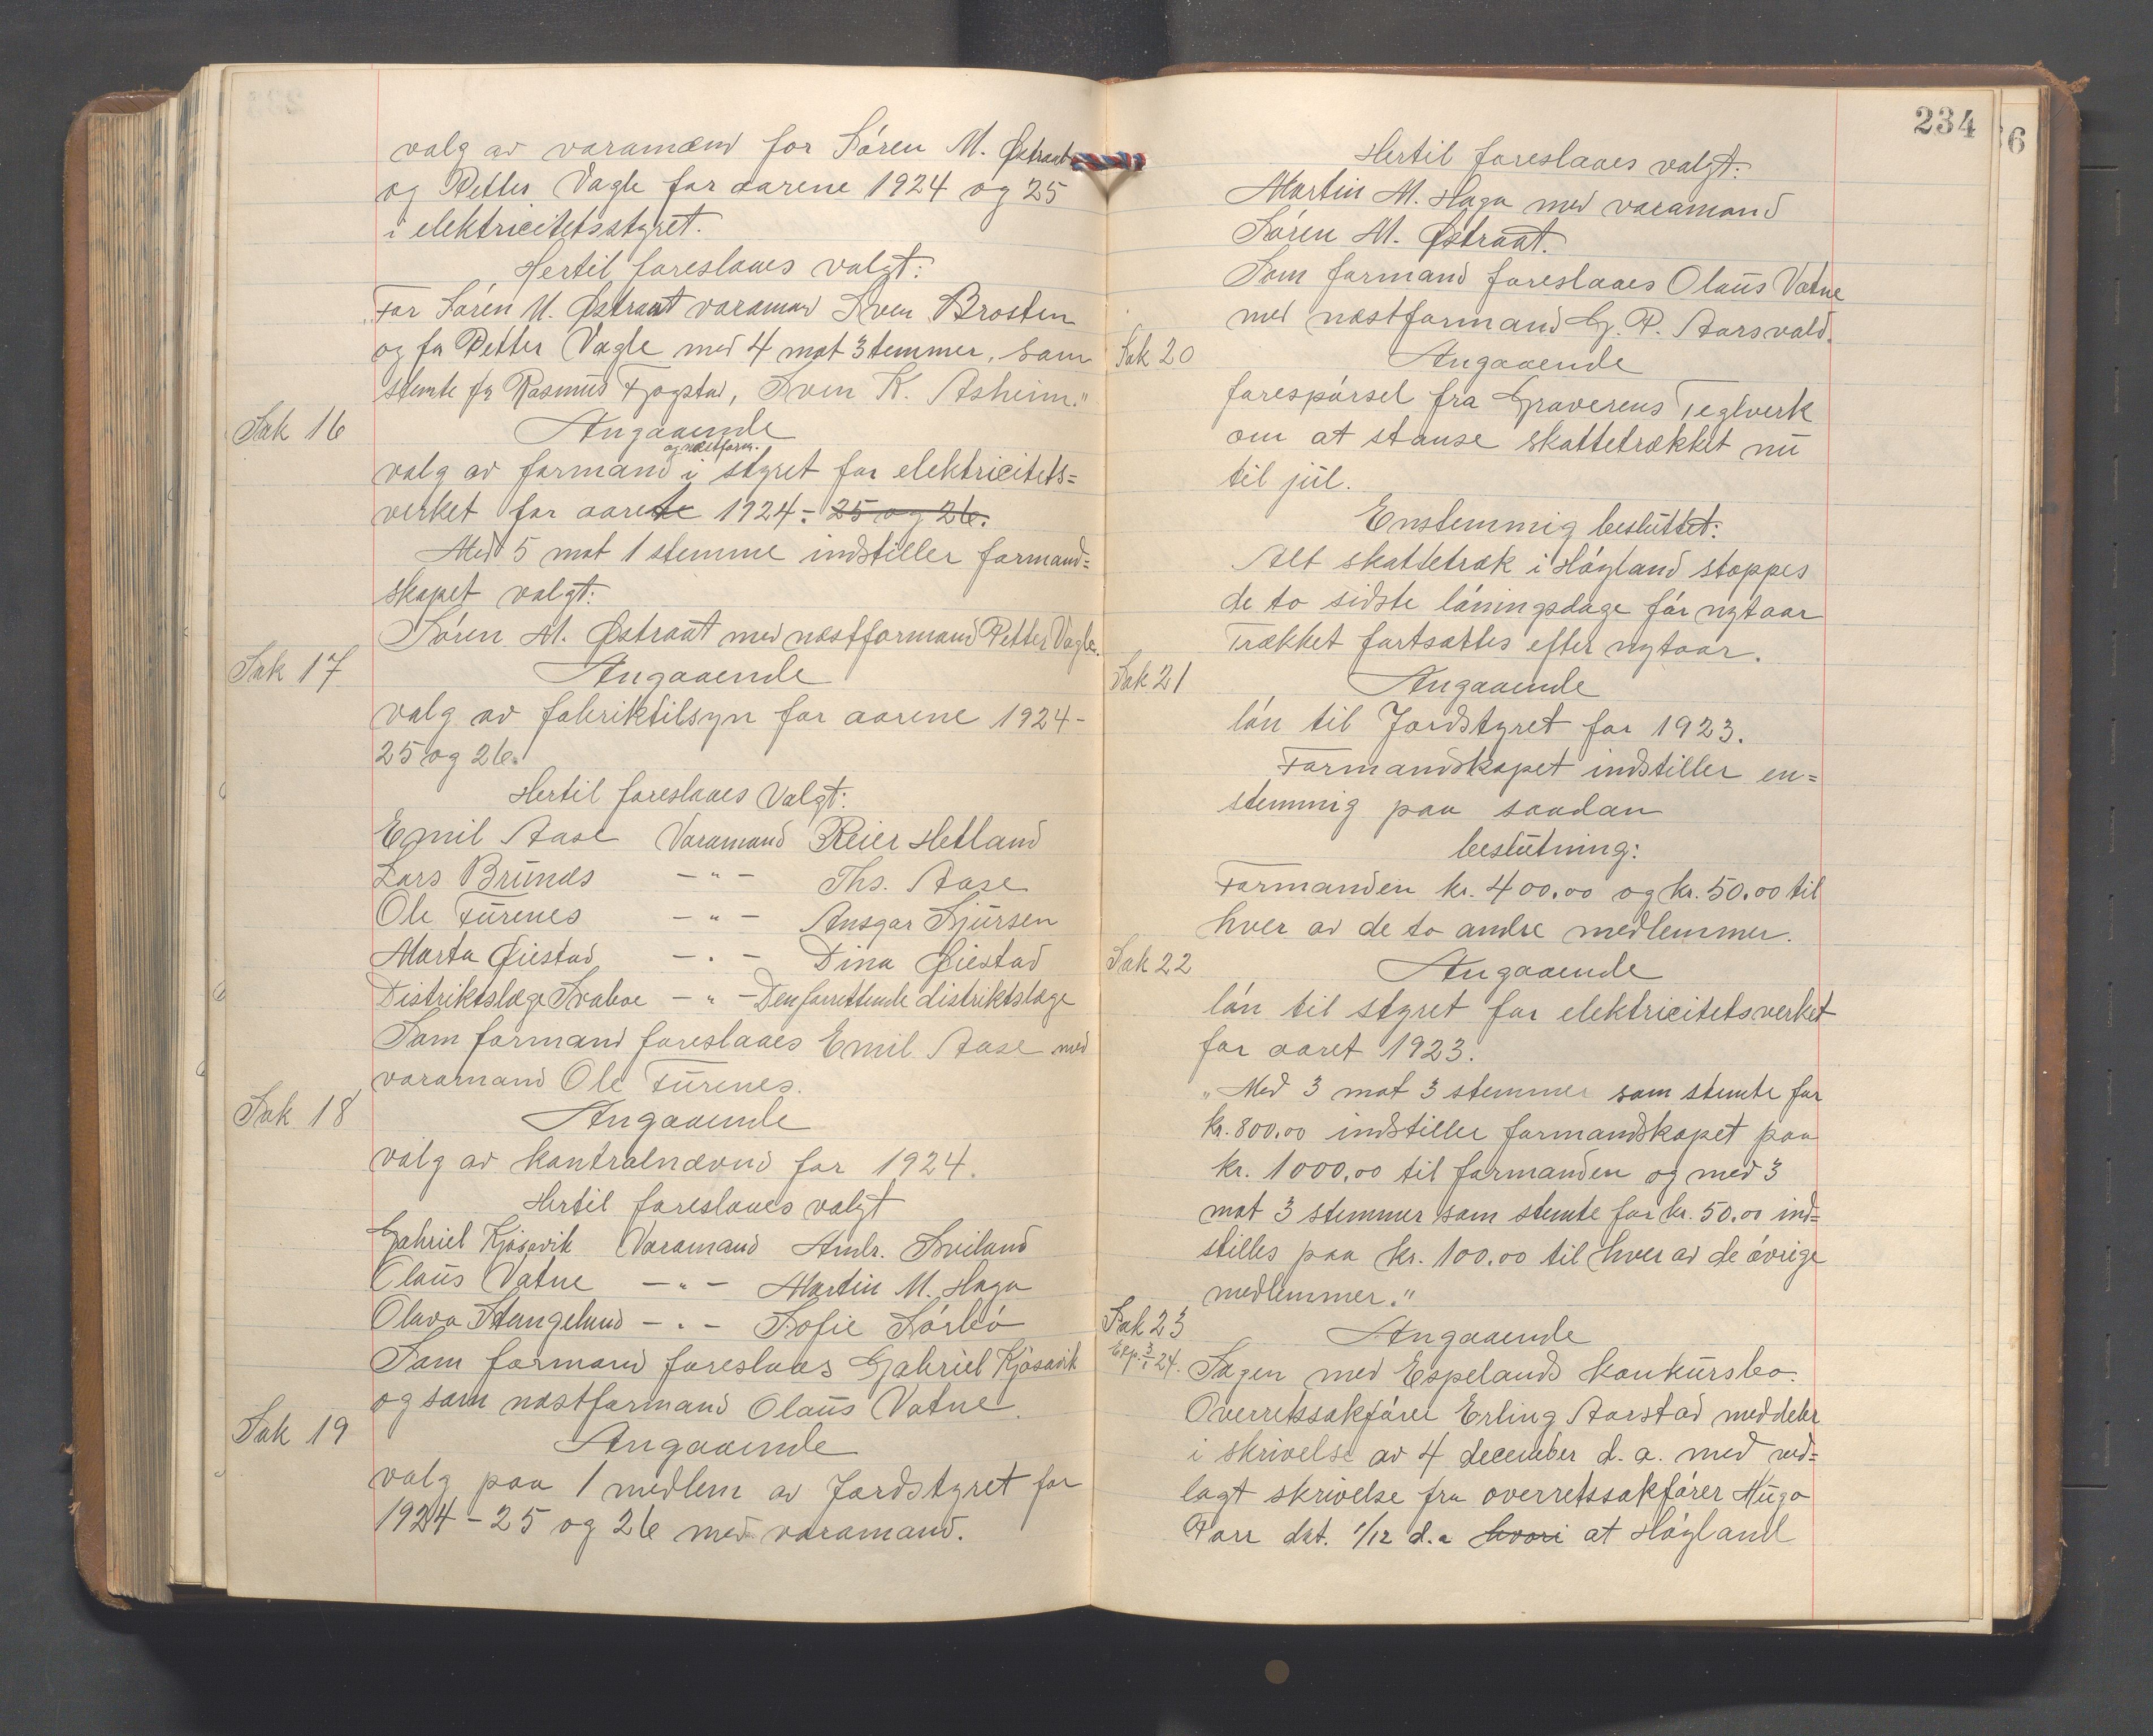 valg av varamænd for Sören M. Østraat
og Petter Vagle for aarene 1924 og 25
i elektricitetsstyret.
Hertil foreslaaes valgt:
"For Sören M. Østraat varamand Sven Brosten
og for Petter Vagle med 4 mot 3 stemmer, som
stemte for Rasmus Fjogstad, Sven K. Asheim."
Sak 16
Angaaende
og næstform.
valg av formand i styret for elektricitets=
verket for aarete 1924. 25 og 26.
Med 5 mot 1 stemme indstiller formand=
skapet valgt:
Sören M. Østraat med næstformand Petter Vagle.
Sak 17
Angaaende
valg av fabriktilsyn for aarene 1924-
25 og 26.
Hertil foreslaaes Valgt:
Emil Aase Varamand Reier Hetland
Lars Brunæs - " - Ths. Aase
Ole Furenes - " - Ansgar Sjursen
Marta Øiestad - " - Dina Øiestad
Distriktslæge Svaboe - " - Den forrettende distriktslæge
Som formand foreslaaes Emil Aase med
varamand Ole Furenes.
Sak 18
Angaaende
valg av kontrolnævnd for 1924.
Hertil foreslaaes valgt
Gabriel Kjösavik Varamand Ambr. Sviland
Olaus Vatne - " - Martin M. Haga
Olava Stangeland - " - Sofie Sörbö
Som formand foreslaaes Gabriel Kjösavik
og som næstformand Olaus Vatne.
Sak 19
Angaaende
valg paa 1 medlem av Jordstyret for
1924 - 25 og 26 med varamand.
234
6
Hertil foreslaaes valgt:
Martin M. Haga med varamand
Sören M. Østraat.
Som formand foreslaaes Olaus Vatne
med næstformand G. P. Aarsvold.
Sak 20
Angaaende
forespörsel fra Graverens Teglverk
om at stanse skattetrækket nu
til jul.
Enstemmig besluttet:
Alt skattetræk i Höyland stoppes
de to sidste löningsdage för nytaar
Trækket fortsættes efter nytaar.
Sak 21
Angaaende
lön til Jordstyret for 1923.
Formandskapet indstiller en=
stemmig paa saadan
beslutning:
Formanden kr. 400.00 og kr. 50.00 til
hver av de to andre medlemmer.
Sak 22
Angaaende
lön til styret for elektricitetsverket
for aaret 1923.
"Med 3 mot 3 stemmer som stemte for
kr. 800.00 indstiller formandskapet paa
kr. 1000.00 til formanden og med 3
mot 3 stemmer som stemte for kr. 50.00 ind=
stilles paa kr. 100.00 til hver av de övrige
medlemmer."
Sak 23
Angaaende
Exp. 3/1 24.
Sagen med Espelands konkursbo.
Overretssakförer Erling Aarstad meddeler
i skrivelse av 4 december d. a. med ved=
lagt skrivelse fra overretssakförer Hugo
Parr dat. 1/12 d.a hvori at Höyland